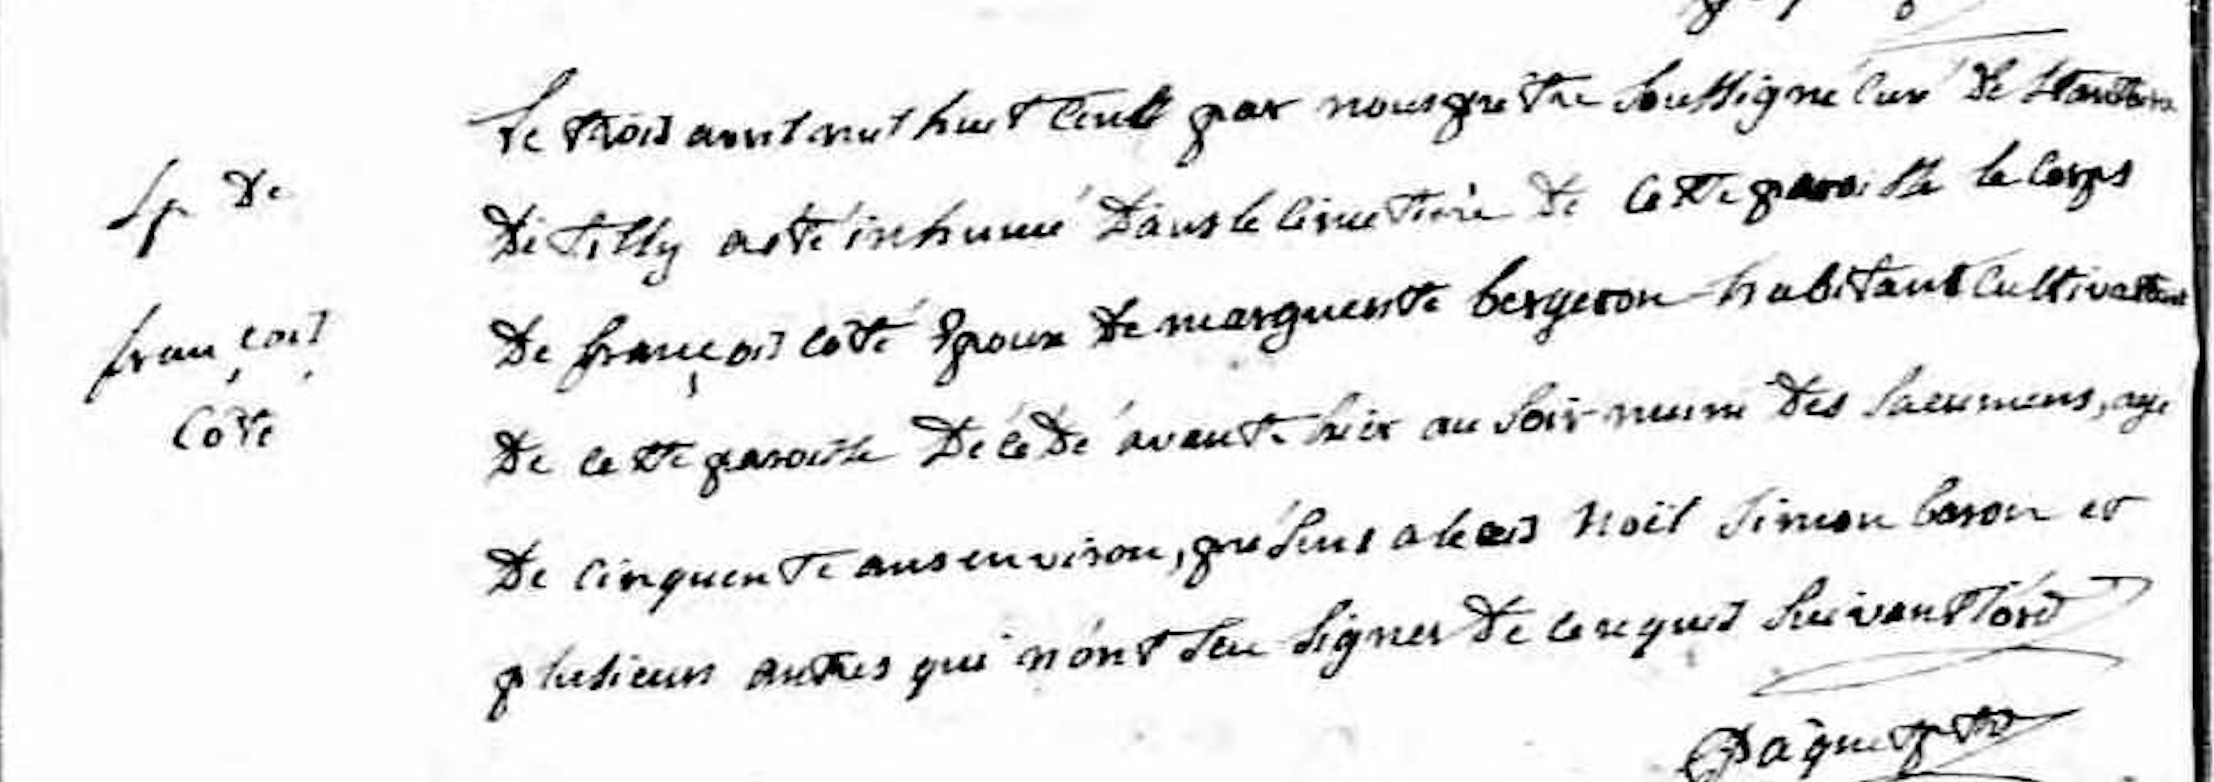 Sp De
françois
Côté
Le trois avril mil huit cent par nous prêtre soussigné curé de St antoine
De tilly a eté inhumé Dans le cimetière De Cette paroisse le corps
De françois coté Epoux De marguerite bergeron habitant Cultivateur
De cette paroisse Décédé avant hier au soir muni Des Sacremens, agé
De cinquente ans environ, présens alexis Noël Simon baron et
plusieurs autres qui n'ont seu signer De ce requis suivant l'ord
Pâquet ptre